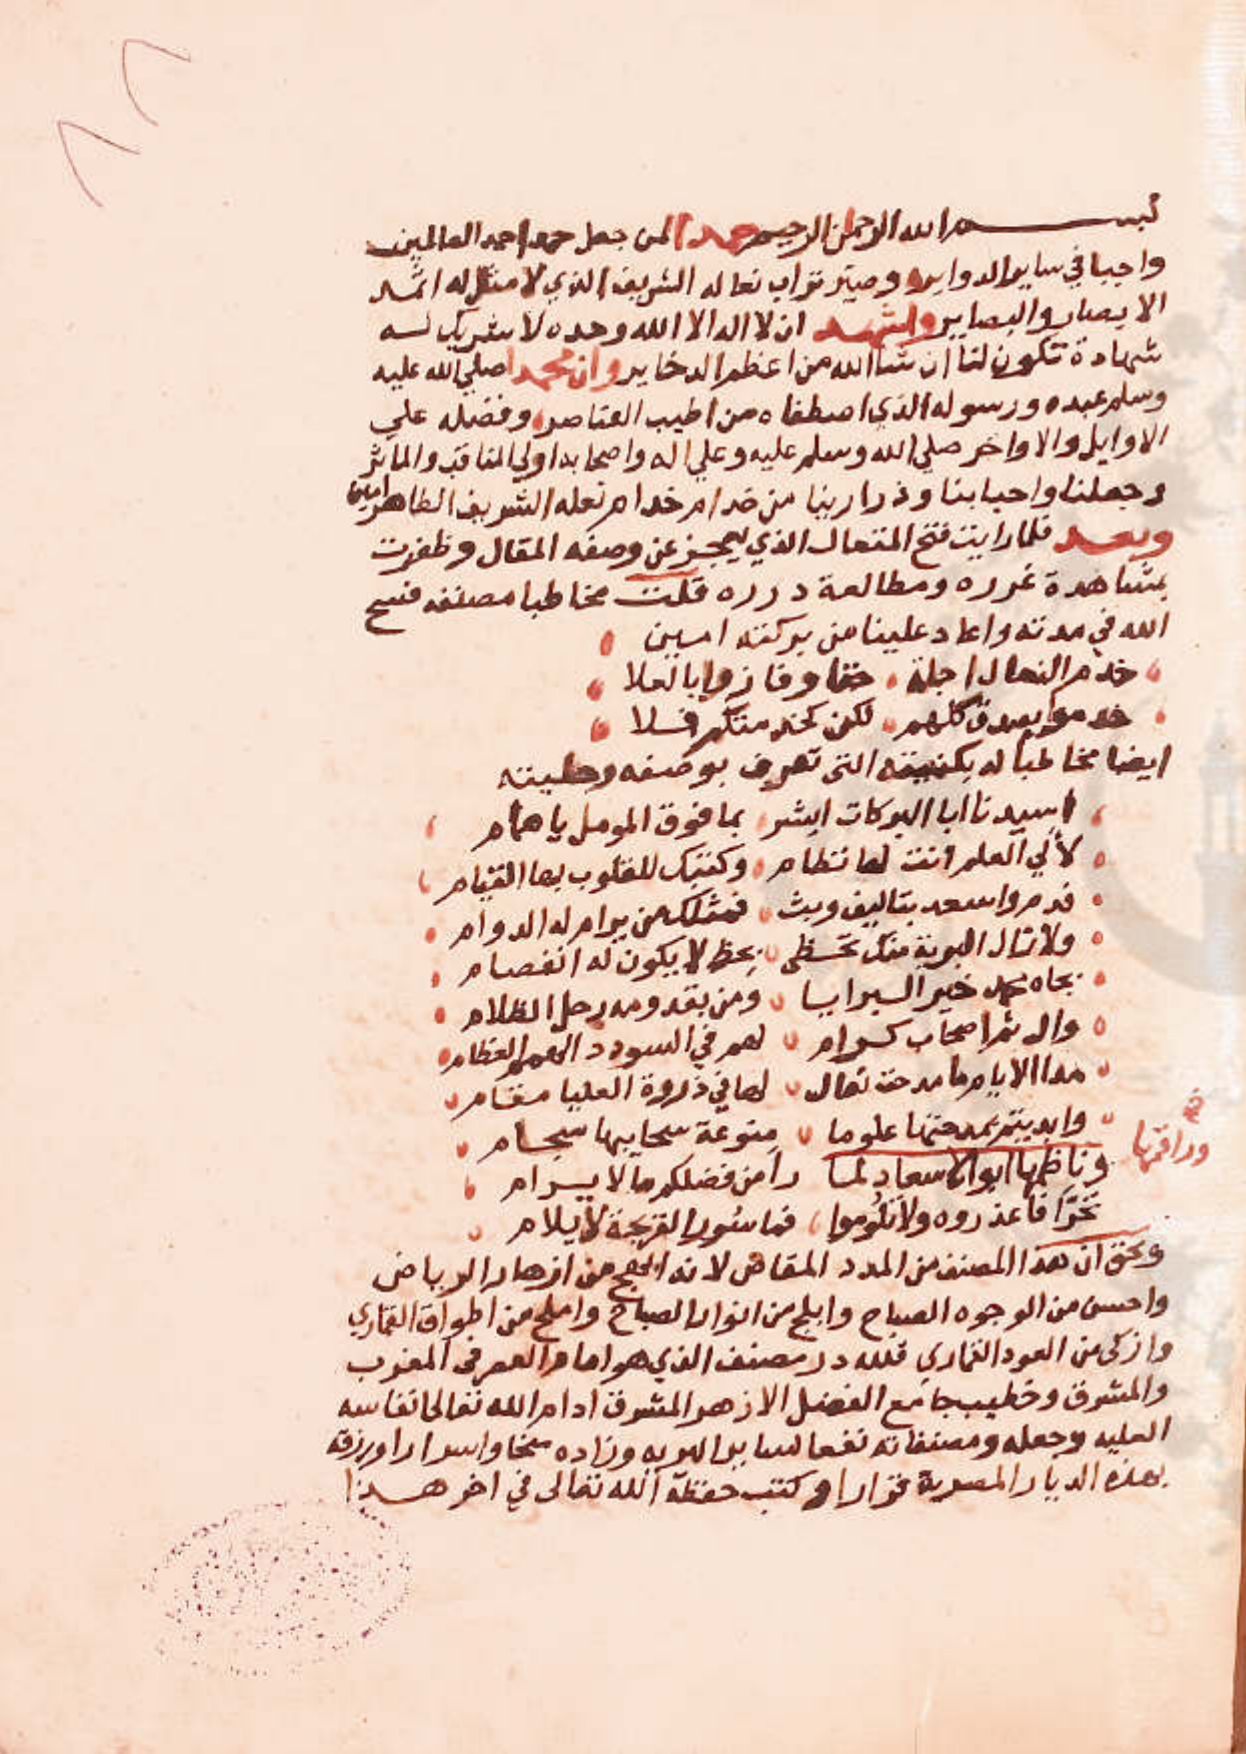 ٨٨
بسم الله الرحمن الرحيم حمدا لمن جعل حمد احمد العالمين
واجبا في ساير الدواير وصير تراب نعاله الشريف الذي لا مثل له اثمد
الابصار والبصاير واشهد ان لا اله الا الله وحده لا شريك له
شهادة تكون لنا ان شا الله من اعظم الدخاير وان محمدا صلي الله عليه
وسلم عبده ورسوله الذي اصطفاه من اطيب العناصر وفضله علي
الاوايل والاواخر صلي الله وسلم عليه وعلي اله واصحابه اولي المناقب والماثر
وجعلنا واحبابنا وذرارينا من خدام خدام نعله الشريف الطاهر امين
وبعد فلما رايت فتح المتعال الذي يعجز عن وصفه المقال وظفرت
بمشاهدة غرره ومطالعة درره قلت مخاطبا مصنفه فسح
الله في مدته واعاد علينا من بركته امين
خدم النعال اجلة حقا وفازوا بالعلا
خدموا بصدق كلهم لكن كخدمتكم فلا
ايضا مخاطبا له بكنيته التي تعرف بوصفه وحليته
اسيدنا ابا البركات ابشر بما فوق المومل يا همام
لألي العلم انت لها نتظام وكتبك للقلوب بها القيام
فدم واسعد بتاليف وبث فمثلك من يرام له الدوام
ولا تزال البرية منك تحظى بحظ لا يكون له انفصام
بجاه محمد خير البرايا ومن بقدومه رحل الظلام
وال ثم اصحاب كرام لهم في السودد الهمم العظام
مدا الايام ما مدحت نعال لها في ذروة العليا مقام
وابديتم بمدحتها علوما منوعة سحايبها سجام
وناظمها ابو الاسعاد لما رأ من فضلكم ما لا يرام
وراقمها
تحرّا فأعذروه ولا تلوموا فما شور القريحة لا يلام
وبحق ان هذا المصنف من المدد المفاض لانه ابهج من ازهار الرياض
واحسن من الوجوه الصباح وابلج من انوار الصباح واملح من اطواق القماري
وازكى من العود القماري فلله در مصنفه الذي هو امام العصر في المغرب
والمشرق وخطيب جامع الفضل الازهر المشرق ادام الله تعالى انفاسه
العليه وجعله ومصنفاته نفعا لساير البريه وزاده منحا واسرارا ورزقه
بهذه الديار المصرية قرارا وكتب حفظه الله تعالى في اخر هذا